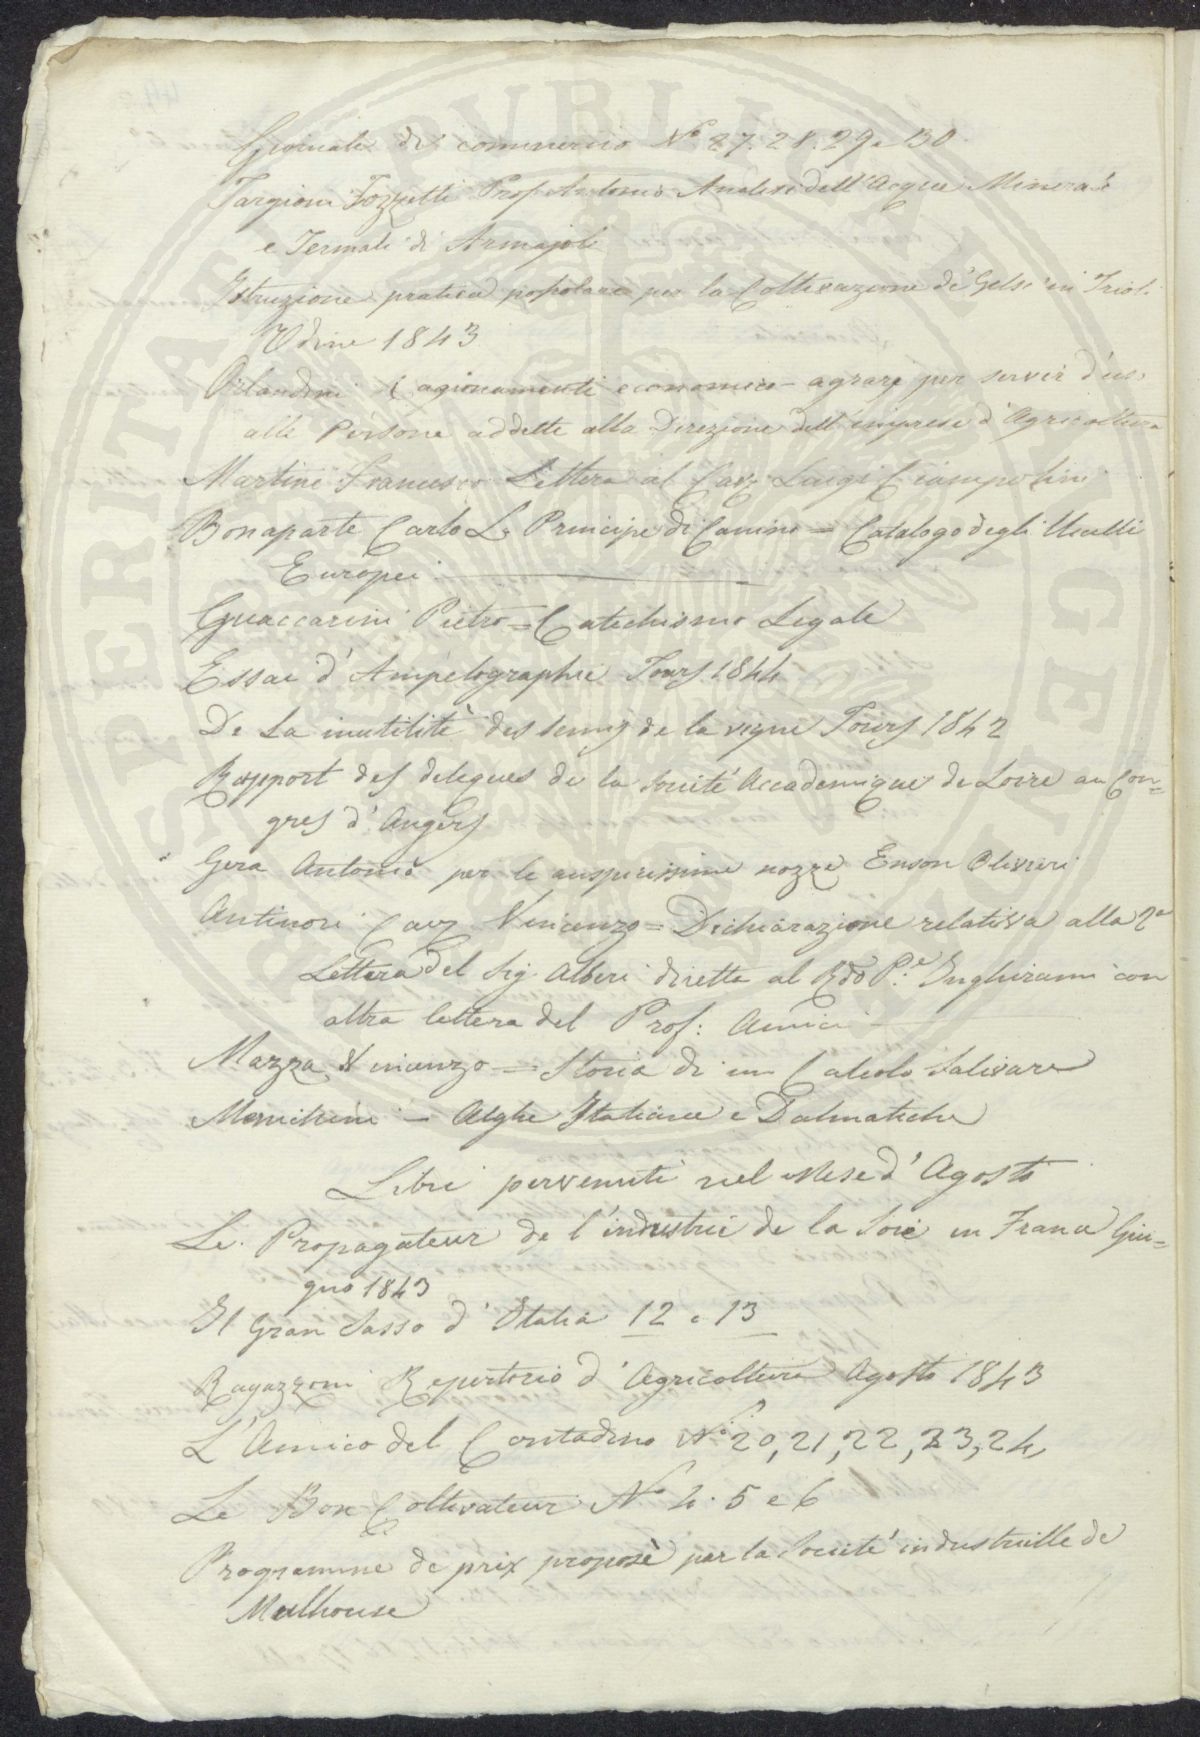 Giornale di commercio N.º 27. 28. 29 e 30.
Targioni Tozzetti Prof. Antonio Analisi dell'Acque Minerali
e Termali di Armajolo
Istruzione pratica popolare per la Coltivazione de' Gelsi in Friol.
Udine 1843
Orlandini Ragionamenti economico-agrarj per servir d'uso
alle Persone addette alla Direzione dell'imprese d'Agricoltura
Martini Francesco Lettera al Cav. Luigi Ciampolini
Bonaparte Carlo L. Principe di Canino = Catalogo degli Uccelli
Europei.
Guaccarini Pietro = Catechismo Legale
Essai d'Ampelographie Tours 1844
De la inutilité des semis de la vigne Tours 1842
Rapport des delegues de la Société Accademique de Loire au Con=
gres d'Angers
Gera Antonio per le auspicissime nozze Enson Olivieri
Antinori Cav. Vincenzo = Dichiarazione relativa alla 2ª
Lettera del Sig. Alberi diretta al Rdo P.e Inghirami con
altra lettera del Prof: Amici
Mazza Vincenzo = Storia di un Calcolo Salivare
Menichini = Alghe Italiane e Dalmatiche
Libri pervenuti nel Mese d'Agosto
Le Propagateur de l'industrie de la Soie en France Giu=
gno 1843
Il Gran Sasso d'Italia 12 e 13
Ragazzoni Repertorio d'Agricoltura Agosto 1843
L'Amico del Contadino N.º 20, 21, 22, 23, 24,
Le Bon Coltivateur N.º 4. 5 e 6
Programme de prix proposè par la Société industrielle de
Mulhouse
PROSPERITATI PVBLICAE AVGENDAE